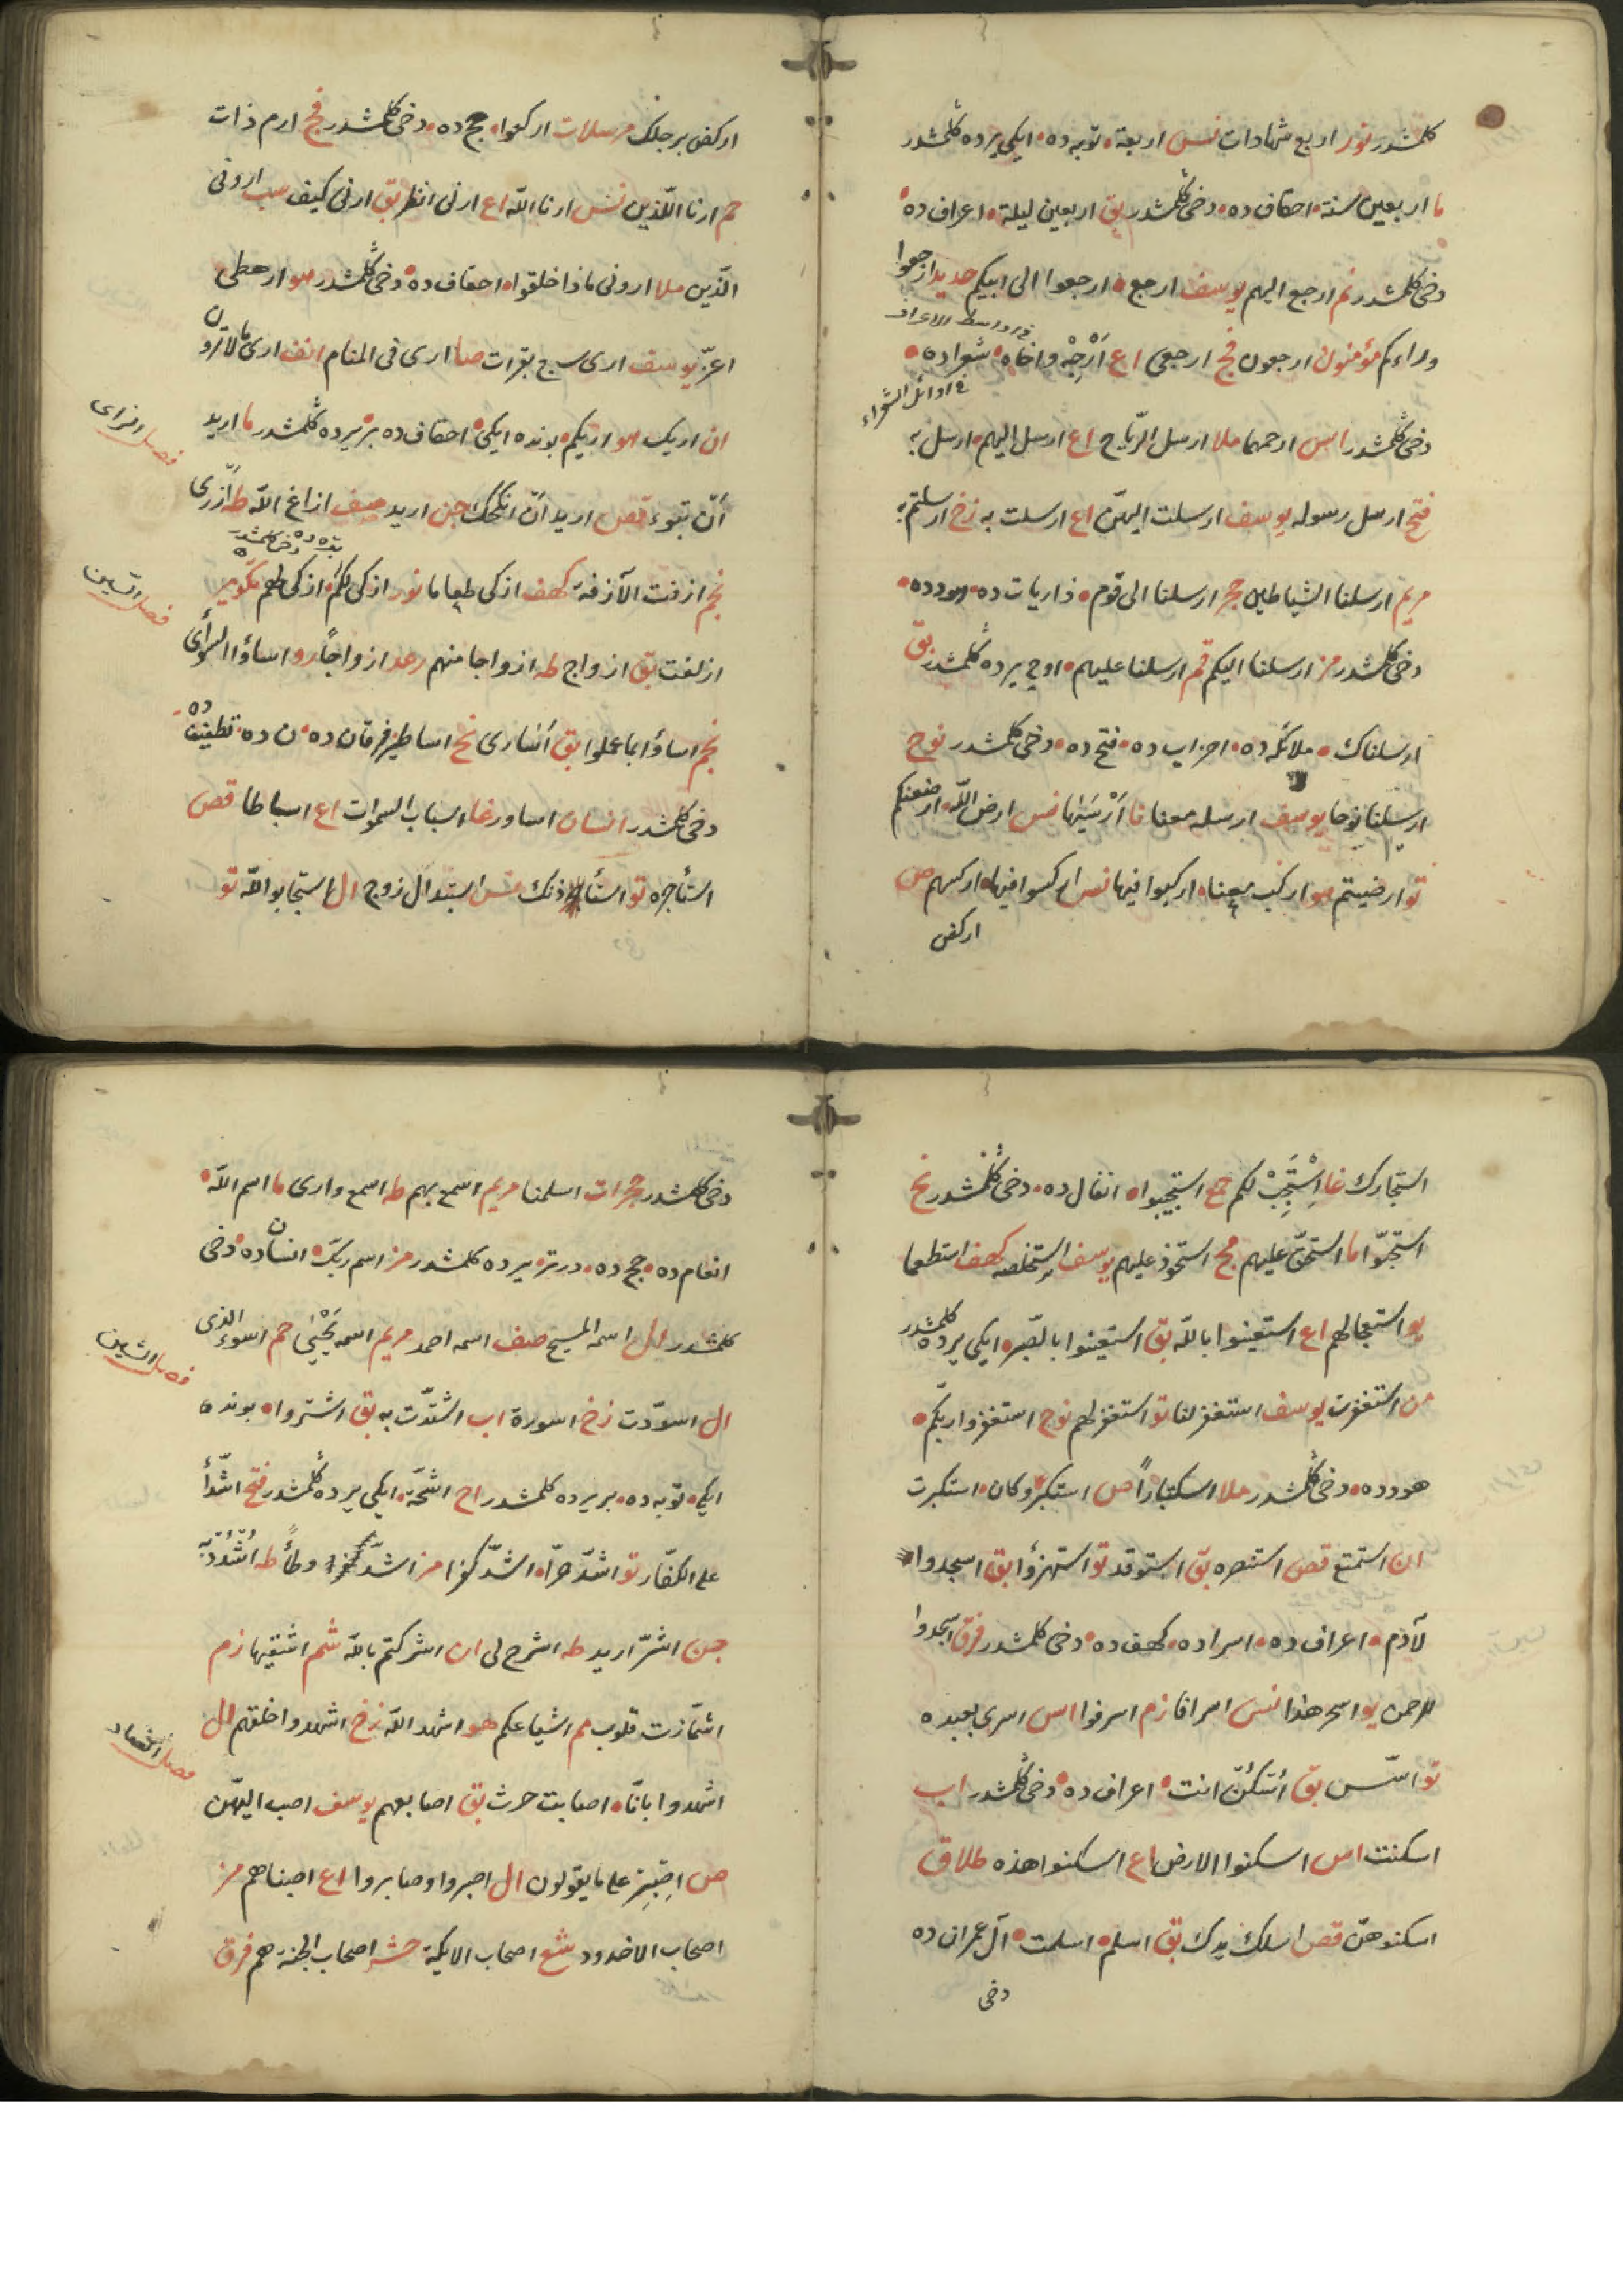 كلمشدر نور اربع شهادات نس اربعة توبه ده ايكى يرده كلمشدر
ما اربعين سنة احقاف ده دخى كلمشدر بق اربعين ليلة اعراف ده
دخى كلمشدر نم ارجع اليهم يوسف ارجع ارجعوا الى ابيكم حديد ارجعوا
وراءكم مؤمنون ارجعون فج ارجعى اع اَرْجِهْ واخاه شعراده
فى اوائل الشعراء
دخى كلمشدر اس ارحمهما ملا ارسل الرّياح اع ارسل اليهم ارسل به
فتح ارسل رسوله يوسف ارسلت اليهنّ اع ارسلت به زخ ارسلتم به
مريم ارسلنا الشياطين حجر ارسلنا الى قوم ذاريات ده هودده
دخى كلمشدر مز ارسلنا اليكم قم ارسلنا عليهم اوچ يرده كلمشدر بق
ارسلناك ملائكه ده احزاب ده فتح ده دخى كلمشدر نوح
ارسلنا نوحا يوسف ارسله معنا نا اَرْسَيٰهَا نس ارض اللّه ارضعنكم
تو ارضيتم هو اركب معنا اركبوا فيها نس اركسوا فيها اركسهم ص
اركض
اركض برجلك مرسلات اركعوا حج ده دخى كلمشدر فج ارم ذات
حم ارنا اللّذين نس ارنا اللّه اع ارنى انظر بق ارنى كيف سب ارونى
الّذين ملا ارونى ماذا خلقوا احقاف ده دخى كلمشدر هو ارهطى
اعزّ يوسف ارى سبع بقرات صا ارى فى المنام انف ارى مالاترون
ان اريك هو اريكم بونده ايكى احقاف ده بر يرده كلمشدر ما اريد
فصل الزاى
اَنْ تبوء قص اريد اَنْ انكحك جن اريد صف ازاغ اللّه طه اَزْرى
نجم ازفت الآزفة كهف ازكى طعاما نور ازكى لكم ازكى لهم تكوير
بقره ده دخى كلمشدر
فصل السّين
ازلفت بق ازواج طه ازواجا منهم رعد ازواجًا رو اساؤا السّوأى
نجم اساؤا بما عملوا بق اُسَارى نح اساطير فرقان ده ن ده تطفيف ده
دخى كلمشدر انسان اساور غا اسباب السموات اع اسباطا قص
استأجره تو استأذنك نس استبدال زوج ال استجابوا للّه تو
استجارك غا اَسْتَجِبْ لكم حم استجيبوا انفال ده دخى كلمشدر نح
استحبّوا ما استحقّ عليهم مج استحوذ عليهم يوسف استخلصه كهف استطعما
يو استعجالهم اع استعينوا باللّه بق استعينوا بالصّبر ايكى يرده كلمشدر
من استغفرت يوسف استغفر لنا تو استغفر لهم نوح استغفروا ربّكم
هودده دخى كلمشدر ملا استكبارًا ص استكبر وكان استكبرت
ان استمتع قص استنصره بق استوقد تو استهزؤا بق اسجدوا
لآدم اعراف ده اسراده كهف ده دخى كلمشدر فرق اسجدوا
للرحمن يو اسحر هذا نس اسرافا زم اسرفوا اس اسرى بعبده
تو اسّس بق اُسْكُنْ انت اعراف ده دخى كلمشدر اب
اسكنت اس اسكنوا الارض اع اسكنوا هذه طلاق
اسكنوهنّ قص اسلك يدك بق اسلم اسلمت آل عمران ده
دخى
دخى كلمشدر حجرات اسلمنا مريم اسمع بهم طه اسمع وارى ما اسم اللّه
انعام ده حج ده درت يرده كلمشدر مز اسم ربّك انسان ده دخى
كلمشدر ال اسمه المسيح صف اسمه احمد مريم اسمه يَحْيٰى حم اسوء الذى
فصل الشين
ال اسودّت زخ اسورة اب اشتدّت به بق اشتروا بونده
ايكى توبه ده بر يرده كلمشدر اح اشحّة ايكى يرده كلمشدر فتح اشدّاء
على الكفّار تو اشدّ حرّا اشدّ كفرا مز اشدّ وطأً طه اُشْدُدْ به
جن اشرّ اريد طه اشرح لى ان اشركتم باللّه شم اشقيها زم
اشمأزت قلوب قم اشياعكم هو اشهد اللّه زخ اشهدوا خلقهم ال
فصل الصّاد
اشهدوا بانّا اصابت حرث بق اصابعهم يوسف اصب اليهنّ
ص اِصْبِرْ على مايقولون ال اصبروا وصابروا اع اصبناهم مز
اصحاب الاخدود شع اصحاب الايكة حشر اصحاب الجنة هم فرق